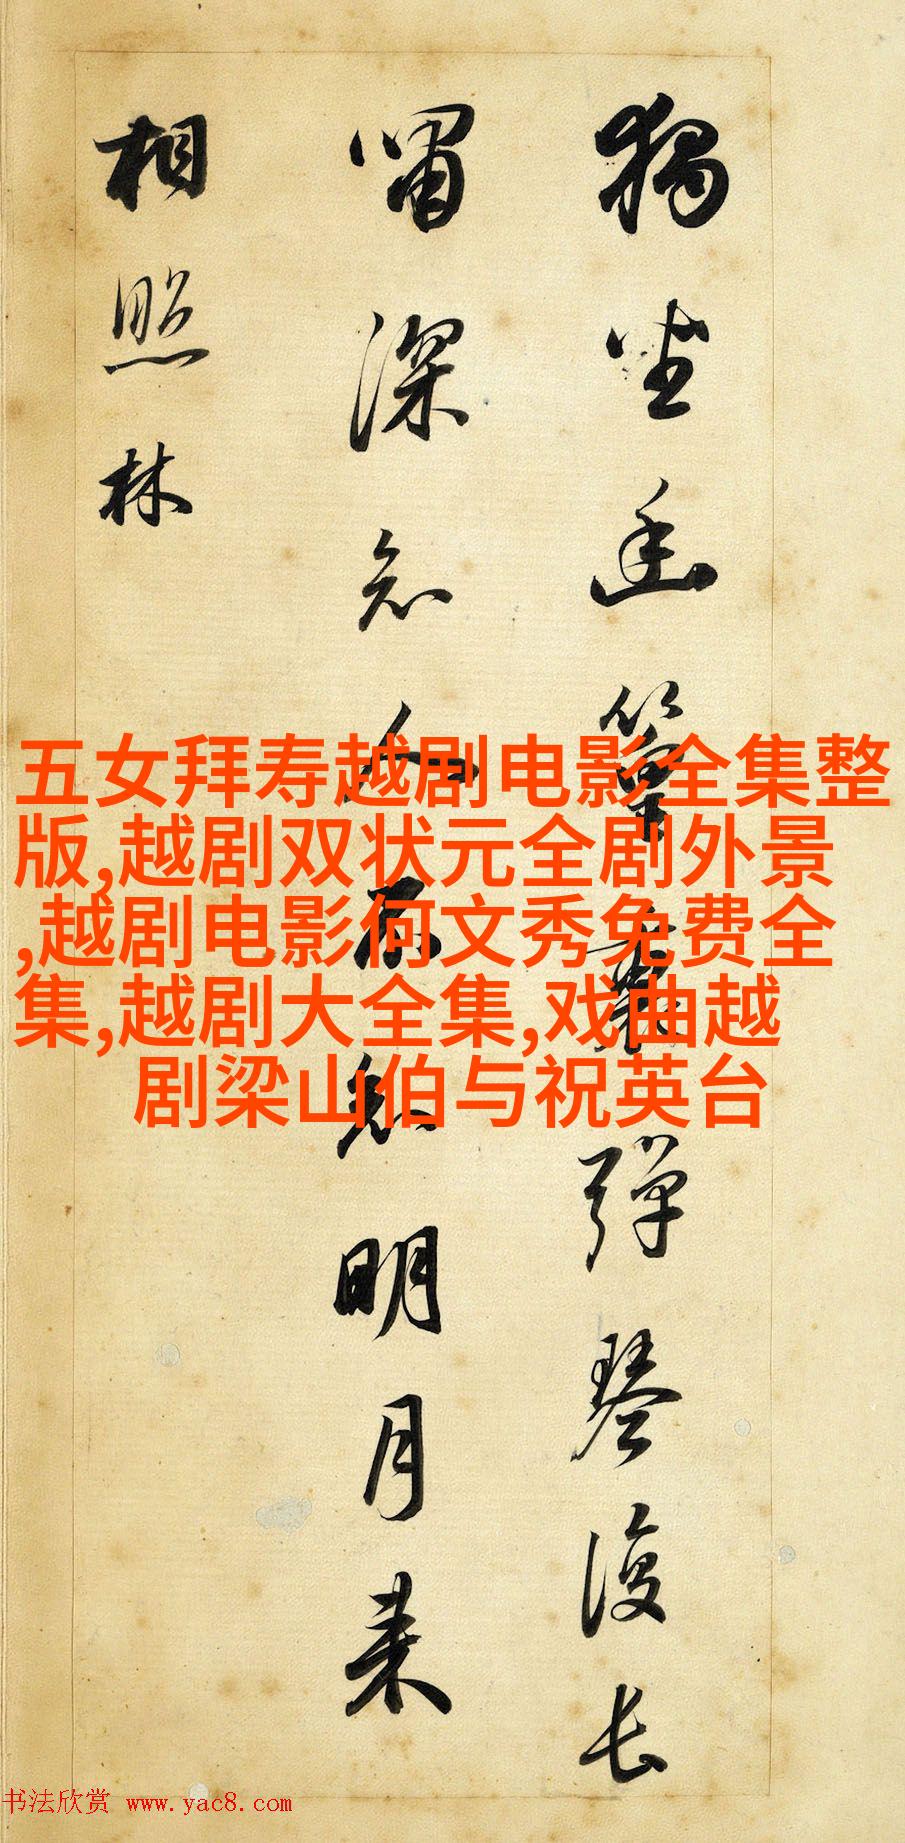 獨坐幽篁裏彈琴復長
嘯深知人不知明月来
相照林
五女拜寿越剧电影全集整
版,越剧双状元全剧外景
,越剧电影何文秀免费全
集,越剧大全集,戏曲越
剧梁山伯与祝英台
书法欣赏 www.yac8.com